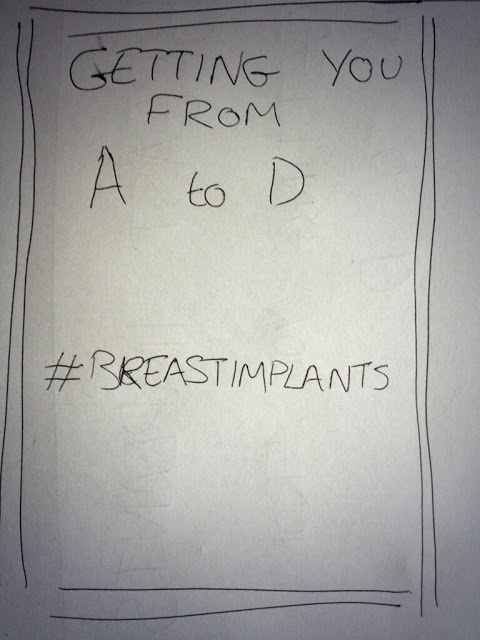 GETTING YOU
FROM
A to D
#BREASTIMPLANTS